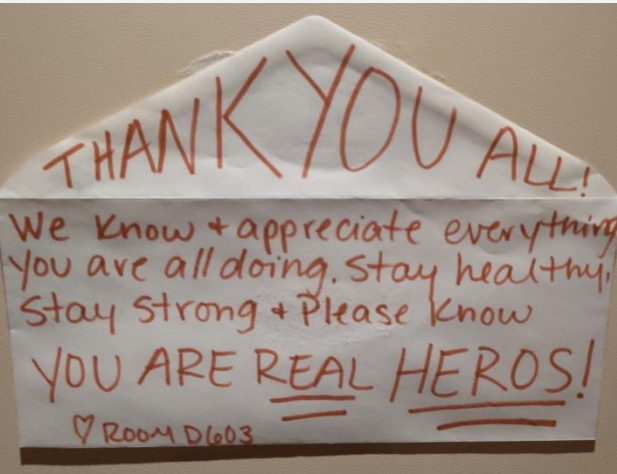 THANK YOU ALL!
We know + appreciate everything
you are all doing. Stay healthy,
Stay Strong + Please know
YOU ARE REAL HEROS!
♡ ROOM D603